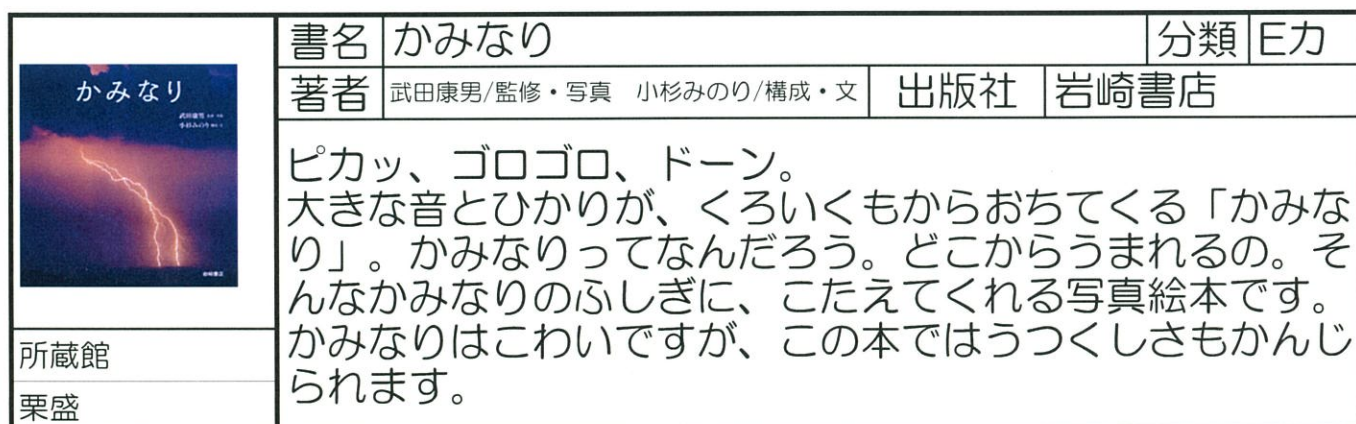 書名 かみなり 分類 Eカ
著者 武田康男/監修・写真 小杉みのり/構成・文 出版社 岩崎書店
かみなり
武田康男 監修・写真
小杉みのり 構成・文
岩崎書店
ピカッ、ゴロゴロ、ドーン。
大きな音とひかりが、くろいくもからおちてくる「かみな
り」。かみなりってなんだろう。どこからうまれるの。そ
んなかみなりのふしぎに、こたえてくれる写真絵本です。
かみなりはこわいですが、この本ではうつくしさもかんじ
られます。
所蔵館
栗盛